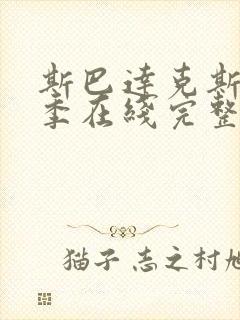 斯巴達克斯
季在綫完整
猫子 志之村旭